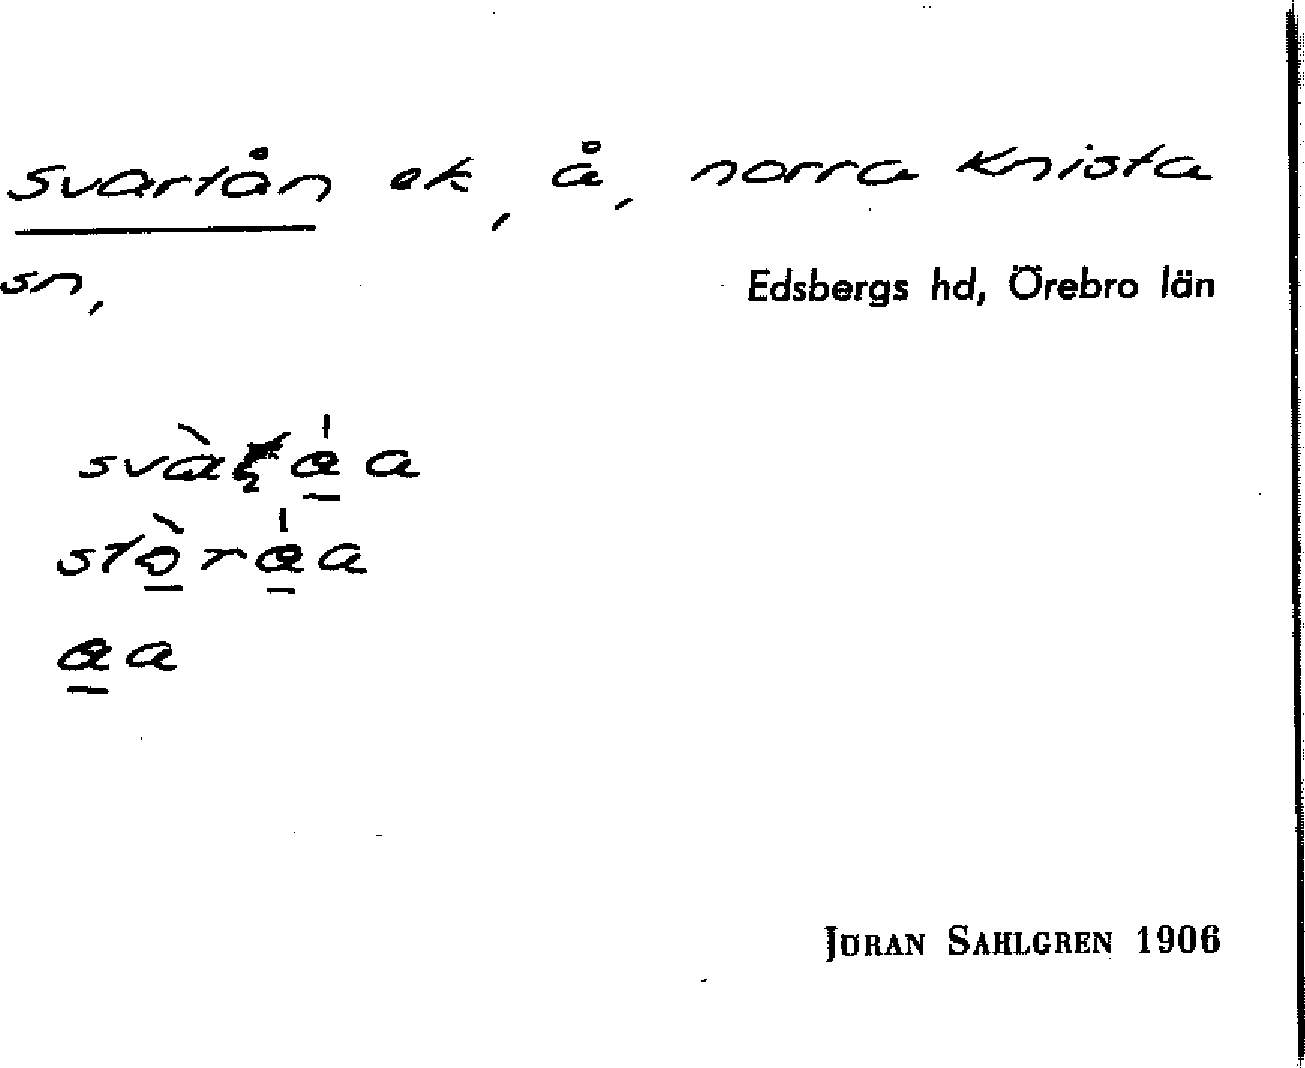 Svartån ek, å, norra Knista
sn,
Edsbergs hd, Örebro län
stòråa
åa
JÖRAN SAHLGREN 1906